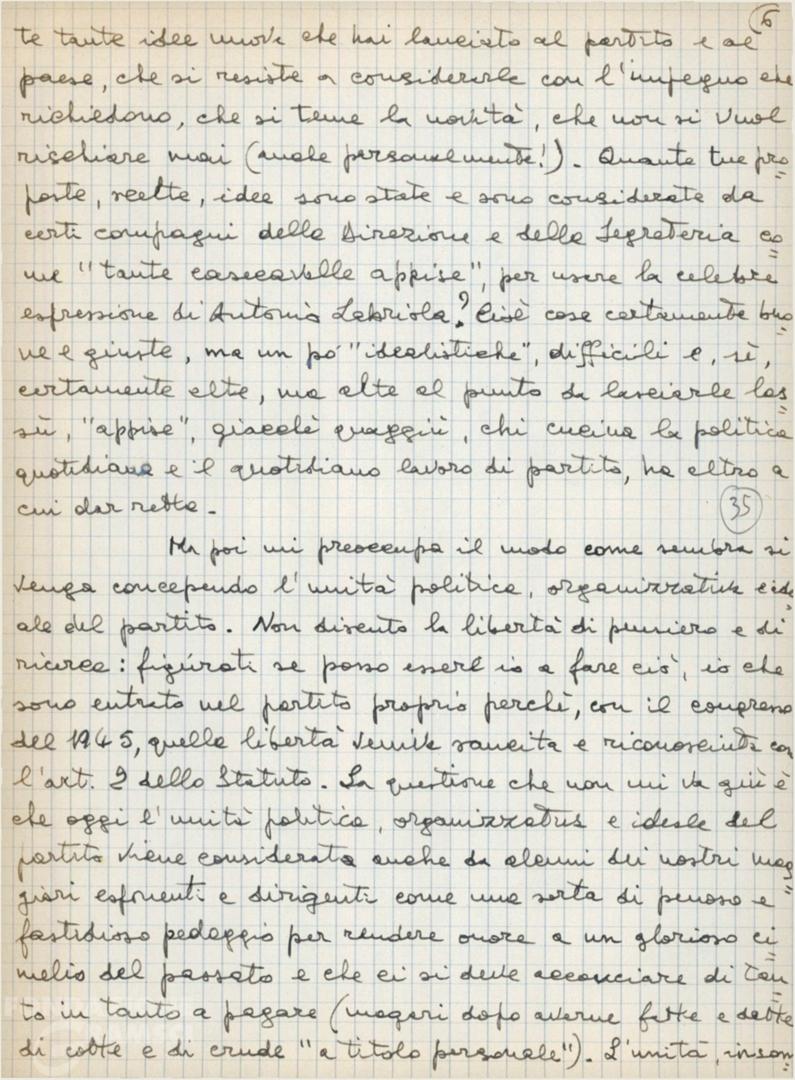 6
te tante idee nuove che hai lanciato al partito e al
paese, che si resiste a considerarle con l'impegno che
richiedono, che si teme la novità, che non si vuol
rischiare mai (anche personalmente!). Quante tue pro=
poste, scelte, idee sono state e sono considerate da
certi compagni della Direzione e della Segreteria co=
me "tante caseçavalle appise", per usare la celebre
espressione di Antonio Labriola? Cioè cose certamente buo=
ne e giuste, ma un po' "idealistiche", difficili e, sì,
certamente alte, ma alte al punto da lasciarle las=
sù, "appise", giacché quaggiù, chi cucina la politica
quotidiana e il quotidiano lavoro di partito, ha altro a
cui dar retta.
35
Ma poi mi preoccupa il modo come sembra si
venga concependo l'unità politica, organizzativa e ide=
ale del partito. Non discuto la libertà di pensiero e di
ricerca: figùrati se posso essere io a fare ciò, io che
sono entrato nel partito proprio perché, con il congresso
del 1945, quella libertà venive sancita e riconosciuta con
l'art. 2 dello Statuto. La questione che non mi va giù è
che oggi l'unità politica, organizzativa e ideale del
partito viene considerata anche da alcuni dei nostri mag=
giori esponenti e dirigenti come una sorta di penoso e
fastidioso pedaggio per rendere onore a un glorioso ci=
melio del passato e che ci si deve acconciare di tan=
to in tanto a pagare (magari dopo averne fatte e dette
di cotte e di crude "a titolo personale"). L'unità, insom=